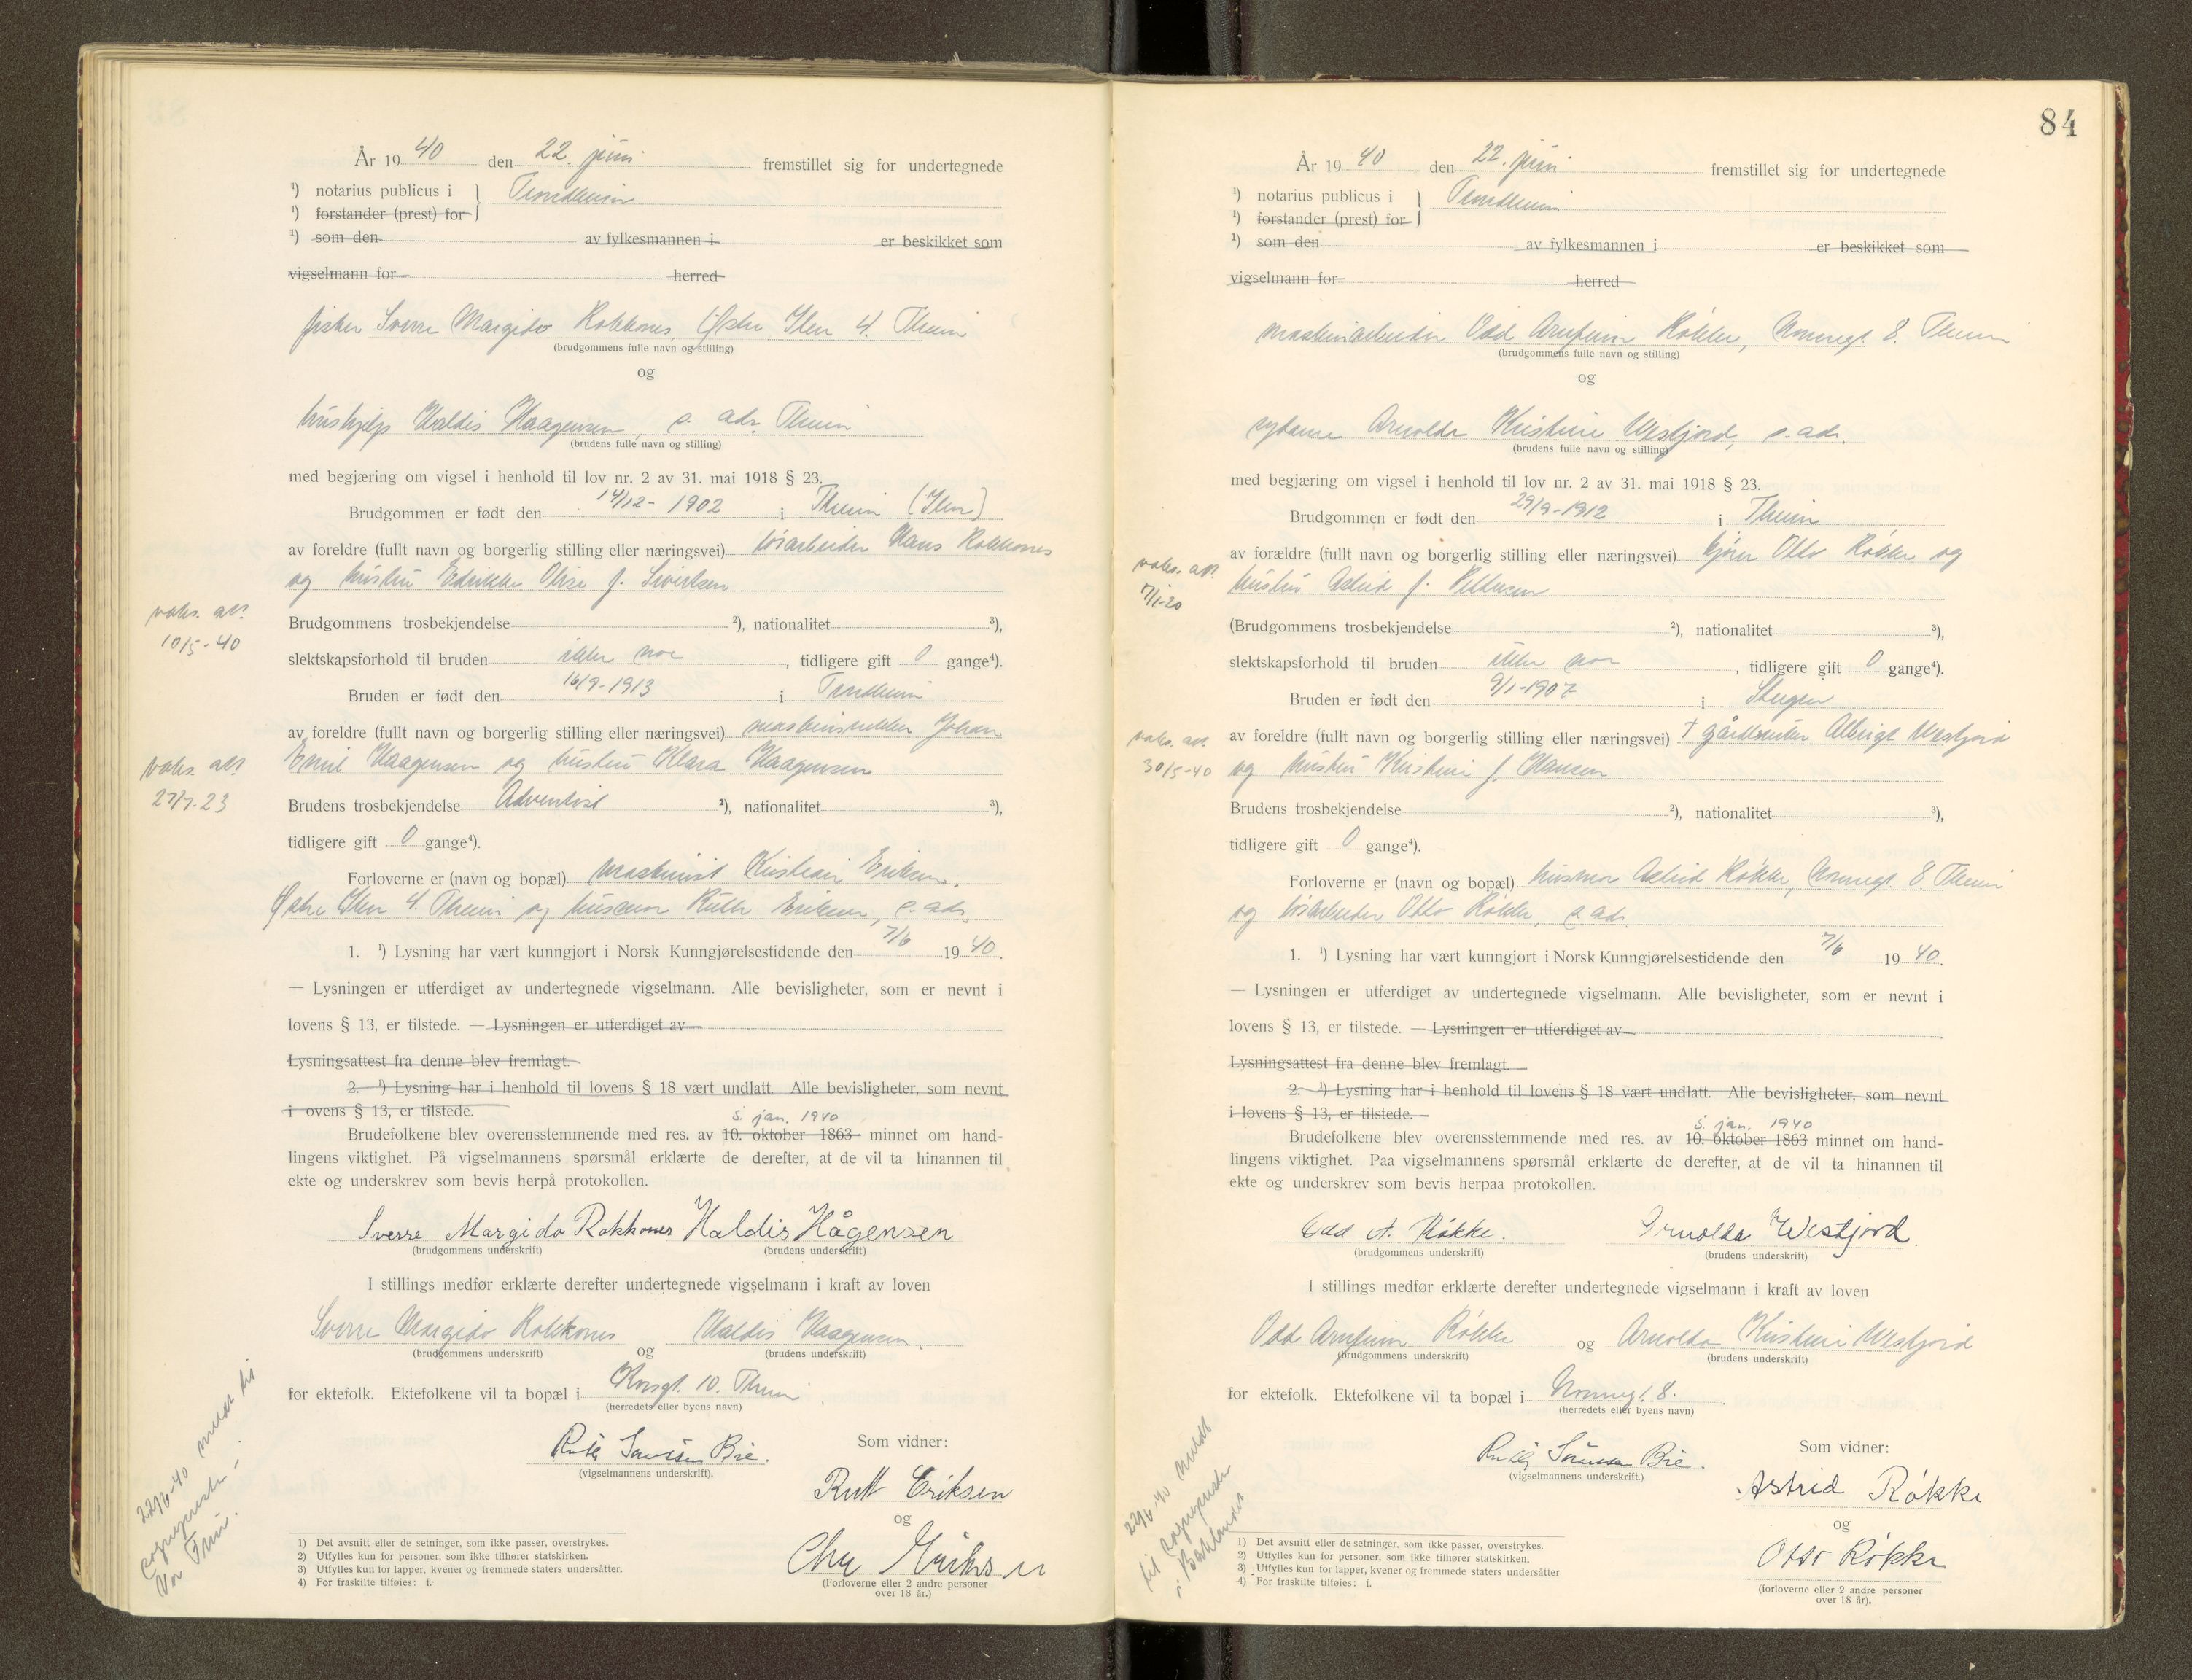 År 1940 den 22. juni fremstillet sig for undertegnede
¹) notarius publicus i } Trondheim
¹) forstander (prest) for
¹) som den av fylkesmannen i er beskikket som
vigselmann for herred
fisker Sverre Margido Rokkones, Østre Ilen 4. Theim
(brudgommens fulle navn og stilling)
og
hushjelp Haldis Haagensen, s. adr. Theim
(brudens fulle navn og stilling)
med begjæring om vigsel i henhold til lov nr. 2 av 31. mai 1918 § 23.
Brudgommen er født den 14/12 - 1902 i Theim (Ilen)
av foreldre (fullt navn og borgerlig stilling eller næringsvei) løsarbeider Hans Rokkones
og hustru Edrikke Olise f. Sivertsen
vaks. att.
10/5-40
Brudgommens trosbekjendelse ²), nationalitet ³),
slektskapsforhold til bruden ikke noe, tidligere gift 0 gange⁴).
Bruden er født den 16/9-1913 i Trondheim
av foreldre (fullt navn og borgerlig stilling eller næringsvei) Johan
Emil Haagensen og hustru Klara Haagensen
vaks. att.
27/7-23
Brudens trosbekjendelse Adventist ²), nationalitet ³),
tidligere gift 0 gange⁴).
Forloverne er (navn og bopæl) maskinist Kristian Eriksen,
Østre Ilen 4. Theim og husmor Ruth Eriksen, s. adr.
1. ¹) Lysning har vært kunngjort i Norsk Kunngjørelsestidende den 7/6 1940.
— Lysningen er utferdiget av undertegnede vigselmann. Alle bevisligheter, som er nevnt i
lovens § 13, er tilstede. — Lysningen er utferdiget av
Lysningsattest fra denne blev fremlagt.
2. ¹) Lysning har i henhold til lovens § 18 vært undlatt. Alle bevisligheter, som nevnt
i ovens § 13, er tilstede.
5. jan. 1940
Brudefolkene blev overensstemmende med res. av 10. oktober 1863 minnet om hand-
lingens viktighet. På vigselmannens spørsmål erklærte de derefter, at de vil ta hinannen til
ekte og underskrev som bevis herpå protokollen.
Sverre Margido Rokkones Haldis Hågensen
(brudgommens underskrift) (brudens underskrift)
I stillings medfør erklærte derefter undertegnede vigselmann i kraft av loven
Sverre Margido Rokkones og Haldis Haagensen
(brudgommens underskrift) (brudens underskrift)
for ektefolk. Ektefolkene vil ta bopæl i Korsgt. 10. Theim
(herredets eller byens navn)
Som vidner:
Bie.
(vigselmannens underskrift).
Ruth Eriksen
og
Chr Eriksen
(Forloverne eller 2 andre personer
over 18 år.)
22/6-40 meldt til
sognepresten i
Vor Frue.
1) Det avsnitt eller de setninger, som ikke passer, overstrykes.
2) Utfylles kun for personer, som ikke tilhører statskirken.
3) Utfylles kun for lapper, kvener og fremmede staters undersåtter.
4) For fraskilte tilføies: f.
84
År 1940 den 22. juni fremstillet sig for undertegnede
¹) notarius publicus i } Trondheim
¹) forstander (prest) for
¹) som den av fylkesmannen i er beskikket som
vigselmann for herred
maskinarbeider Odd Arnfinn Røkke, Nonnegt. 8. Theim
(brudgommens fulle navn og stilling)
og
sydame Arnolda Kristine Westfjord, s. adr.
(brudens fulle navn og stilling)
med begjæring om vigsel i henhold til lov nr. 2 av 31. mai 1918 § 23.
Brudgommen er født den 29/9-1912 i Theim
av forældre (fullt navn og borgerlig stilling eller næringsvei) kjører Otto Røkke og
hustru Astrid f. Pettersen
vaks. att.
7/1-20
(Brudgommens trosbekjendelse ²), nationalitet ³),
slektskapsforhold til bruden ikke noe, tidligere gift 0 gange⁴).
Bruden er født den 9/1-1907 i Steigen
av foreldre (fullt navn og borgerlig stilling eller næringsvei) † Albrigt Westfjord
og hustru Kristine f. Hansen
vaks. att.
30/5-40
Brudens trosbekjendelse ²), nationalitet ³),
tidligere gift 0 gange⁴).
Forloverne er (navn og bopæl) husmor Astrid Røkke, Nonnegt. 8. Theim
og løsarbeider Otto Røkke, s. adr.
1. ¹) Lysning har vært kunngjort i Norsk Kunngjørelsestidende den 7/6 1940.
— Lysningen er utferdiget av undertegnede vigselmann. Alle bevisligheter, som er nevnt i
lovens § 13, er tilstede. — Lysningen er utferdiget av
Lysningsattest fra denne blev fremlagt.
2. ¹) Lysning har i henhold til lovens § 18 vært undlatt. Alle bevisligheter, som nevnt
i lovens § 13, er tilstede.
5. jan. 1940
Brudefolkene blev overensstemmende med res. av 10. oktober 1863 minnet om hand-
lingens viktighet. Paa vigselmannens spørsmål erklærte de derefter, at de vil ta hinannen til
ekte og underskrev som bevis herpaa protokollen.
Odd A. Røkke. Arnolda Westfjord.
(brudgommens underskrift) (brudens underskrift)
I stillings medfør erklærte derefter undertegnede vigselmann i kraft av loven
Odd Arnfinn Røkke og Arnolda Kristine Westfjord
(brudgommens underskrift) (brudens underskrift)
for ektefolk. Ektefolkene vil ta bopæl i Nonnegt. 8.
(herredets eller byens navn)
Som vidner:
Bie.
(vigselmannens underskrift.)
Astrid Røkke
og
Otto Røkke
(forloverne eller 2 andre personer
over 18 år).
22/6-40 meldt
til sognepresten
i Bakklandet
1) Det avsnitt eller de setninger, som ikke passer, overstrykes.
2) Utfylles kun for personer, som ikke tilhører statskirken.
3) Utfylles kun for lapper, kvener og fremmede staters undersåtter
4) For fraskilte tilføies: f.